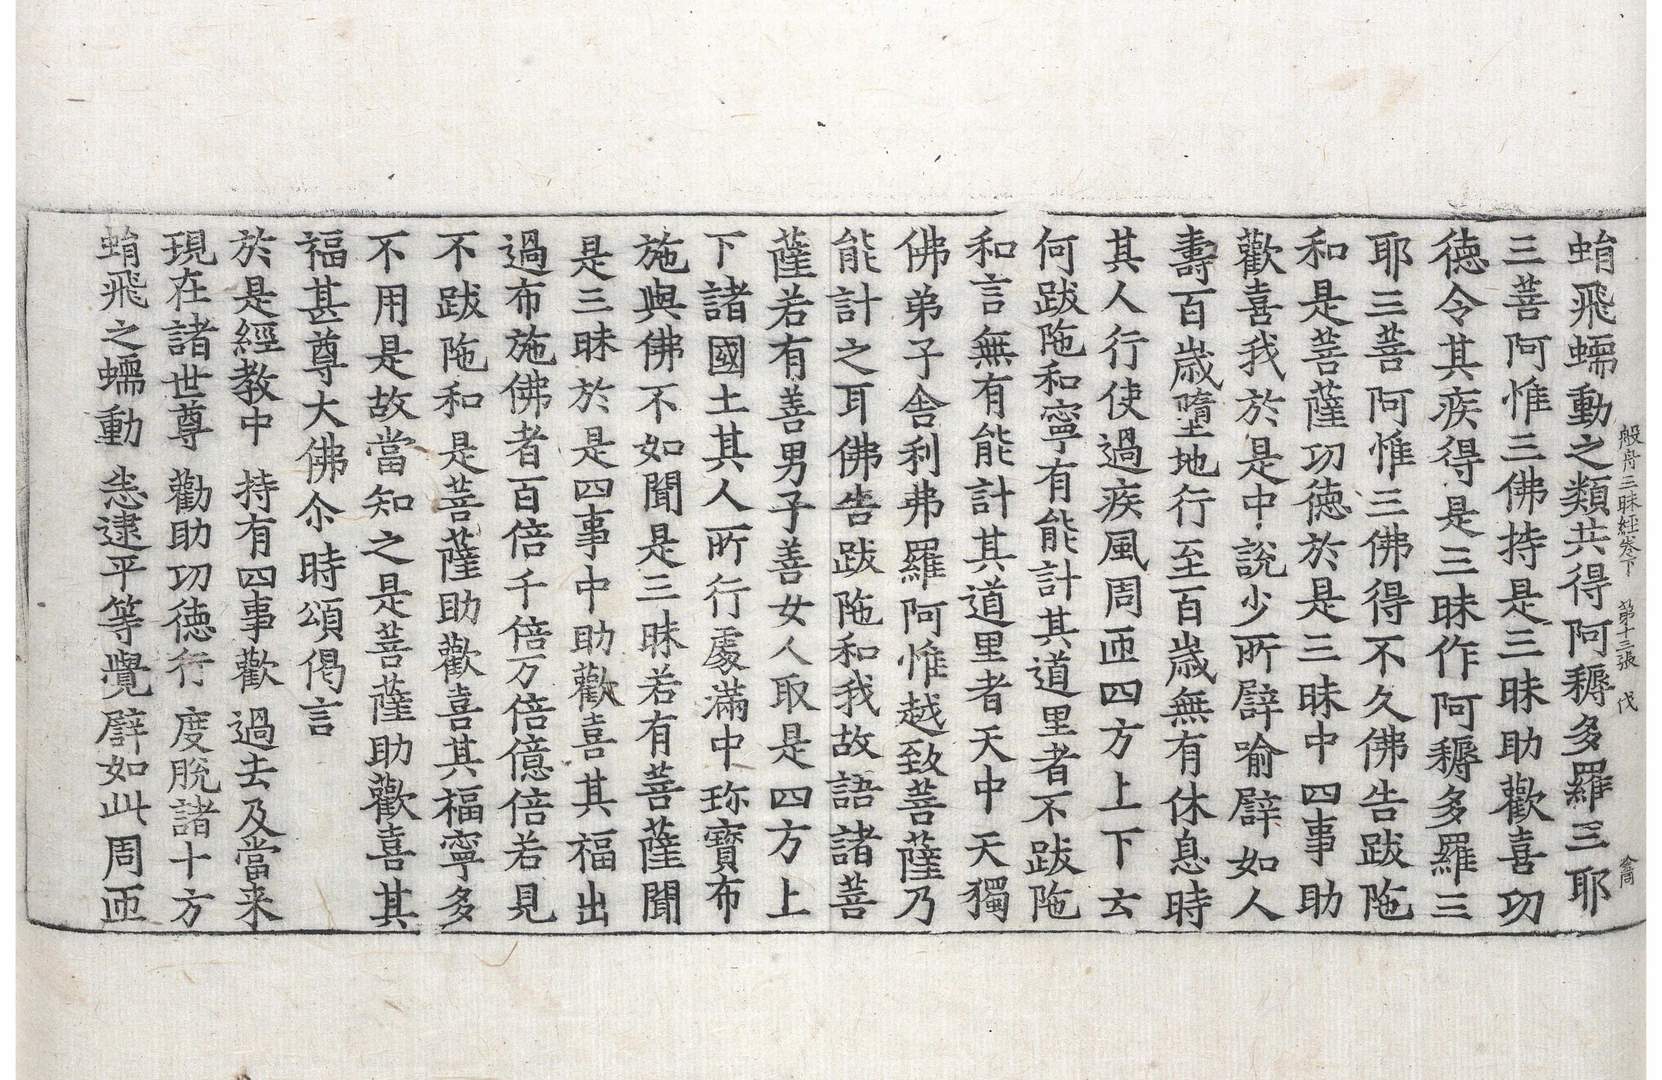 般舟三昧經卷下　第十三張　伐
蜎飛蠕動之類共得阿耨多羅三耶
三菩阿惟三佛持是三昧助歡喜功
德令其疾得是三昧作阿耨多羅三
耶三菩阿惟三佛得不久佛告跋陁
和是菩薩功德於是三昧中四事助
歡喜我於是中說少所譬喻譬如人
壽百歲墮地行至百歲無有休息時
其人行使過疾風周匝四方上下云
何跋陁和寧有能計其道里者不跋陁
和言無有能計其道里者天中天獨
佛弟子舍利弗羅阿惟越致菩薩乃
能計之耳佛告跋陁和我故語諸菩
薩若有善男子善女人取是四方上
下諸國土其人所行處滿中珎寶布
施與佛不如聞是三昧若有菩薩聞
是三昧於是四事中助歡喜其福出
過布施佛者百倍千倍万倍億倍若見
不跋陁和是菩薩助歡喜其福寧多
不用是故當知之是菩薩助歡喜其
福甚尊大佛尒時頌偈言
於是經教中　持有四事歡　過去及當来
現在諸世尊　勸助功德行　度脫諸十方
蜎飛之蠕動　悉逮平等覺　譬如此周匝